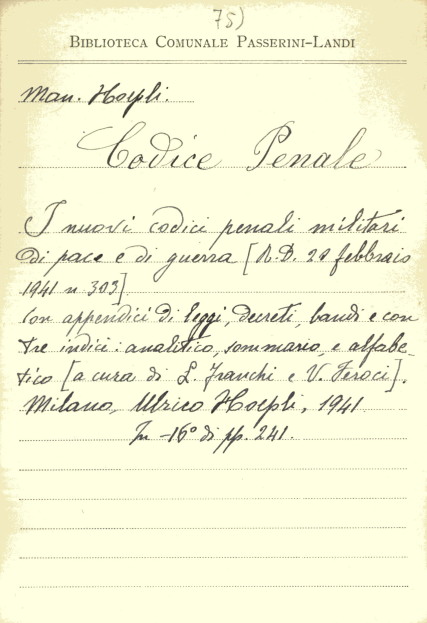 75)
BIBLIOTECA COMUNALE PASSERINI-LANDI
Man. Hoepli.
Codice Penale
I nuovi codici penali militari
di pace e di guerra [R.D. 20 febbraio
1941 n 303]
Con appendici di leggi, decreti, bandi e con
tre indici: analitico, sommario, e alfabe-
tico [a cura di L. Franchi e V. Feroci].
Milano, Ulrico Hoepli, 1941
In -16° di pp. 241.